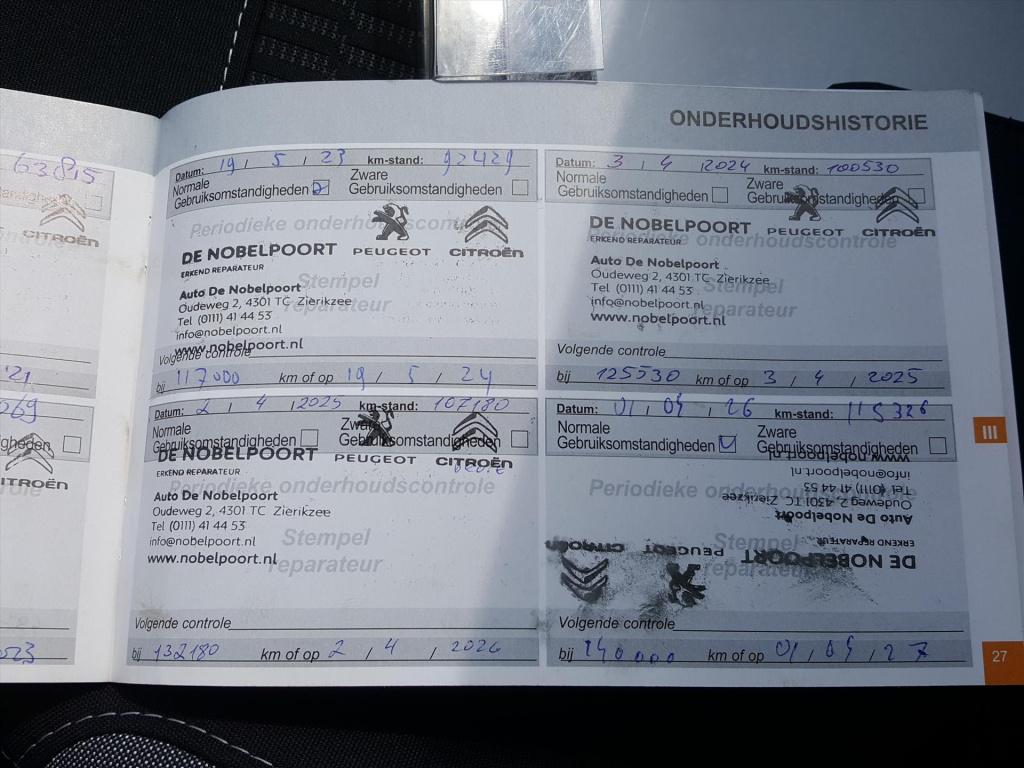 ONDERHOUDSHISTORIE
63815
CITROËN
'21
069
CITROËN
Datum: 19 / 5 / 23 km-stand: 92429
Normale Gebruiksomstandigheden
Zware Gebruiksomstandigheden
Periodieke onderhoudscontrole
DE NOBELPOORT PEUGEOT CITROËN
ERKEND REPARATEUR
Stempel reparateur
Auto De Nobelpoort
Oudeweg 2, 4301 TC Zierikzee
Tel (0111) 41 44 53
info@nobelpoort.nl
www.nobelpoort.nl
Volgende controle
bij 117000 km of op 19 / 5 / 24
Datum: 3 / 4 / 2024 km-stand: 100530
Normale Gebruiksomstandigheden
Zware Gebruiksomstandigheden
Periodieke onderhoudscontrole
DE NOBELPOORT PEUGEOT CITROËN
ERKEND REPARATEUR
Stempel reparateur
Auto De Nobelpoort
Oudeweg 2, 4301 TC Zierikzee
Tel (0111) 41 44 53
info@nobelpoort.nl
www.nobelpoort.nl
Volgende controle
bij 125530 km of op 3 / 4 / 2025
Datum: 2 / 4 / 2025 km-stand: 107180
Normale Gebruiksomstandigheden
Zware Gebruiksomstandigheden
DE NOBELPOORT PEUGEOT CITROËN
ERKEND REPARATEUR
Periodieke onderhoudscontrole
Stempel reparateur
Auto De Nobelpoort
Oudeweg 2, 4301 TC Zierikzee
Tel (0111) 41 44 53
info@nobelpoort.nl
www.nobelpoort.nl
Volgende controle
bij 132180 km of op 2 / 4 / 2026
Datum: 01 / 04 / 26 km-stand: 115326
Normale Gebruiksomstandigheden
Zware Gebruiksomstandigheden
Periodieke onderhoudscontrole
Stempel reparateur
DE NOBELPOORT PEUGEOT CITROËN
ERKEND REPARATEUR
Auto De Nobelpoort
Oudeweg 2, 4301 TC Zierikzee
Tel (0111) 41 44 53
info@nobelpoort.nl
www.nobelpoort.nl
Volgende controle
bij 140000 km of op 01 / 04 / 27
III
27